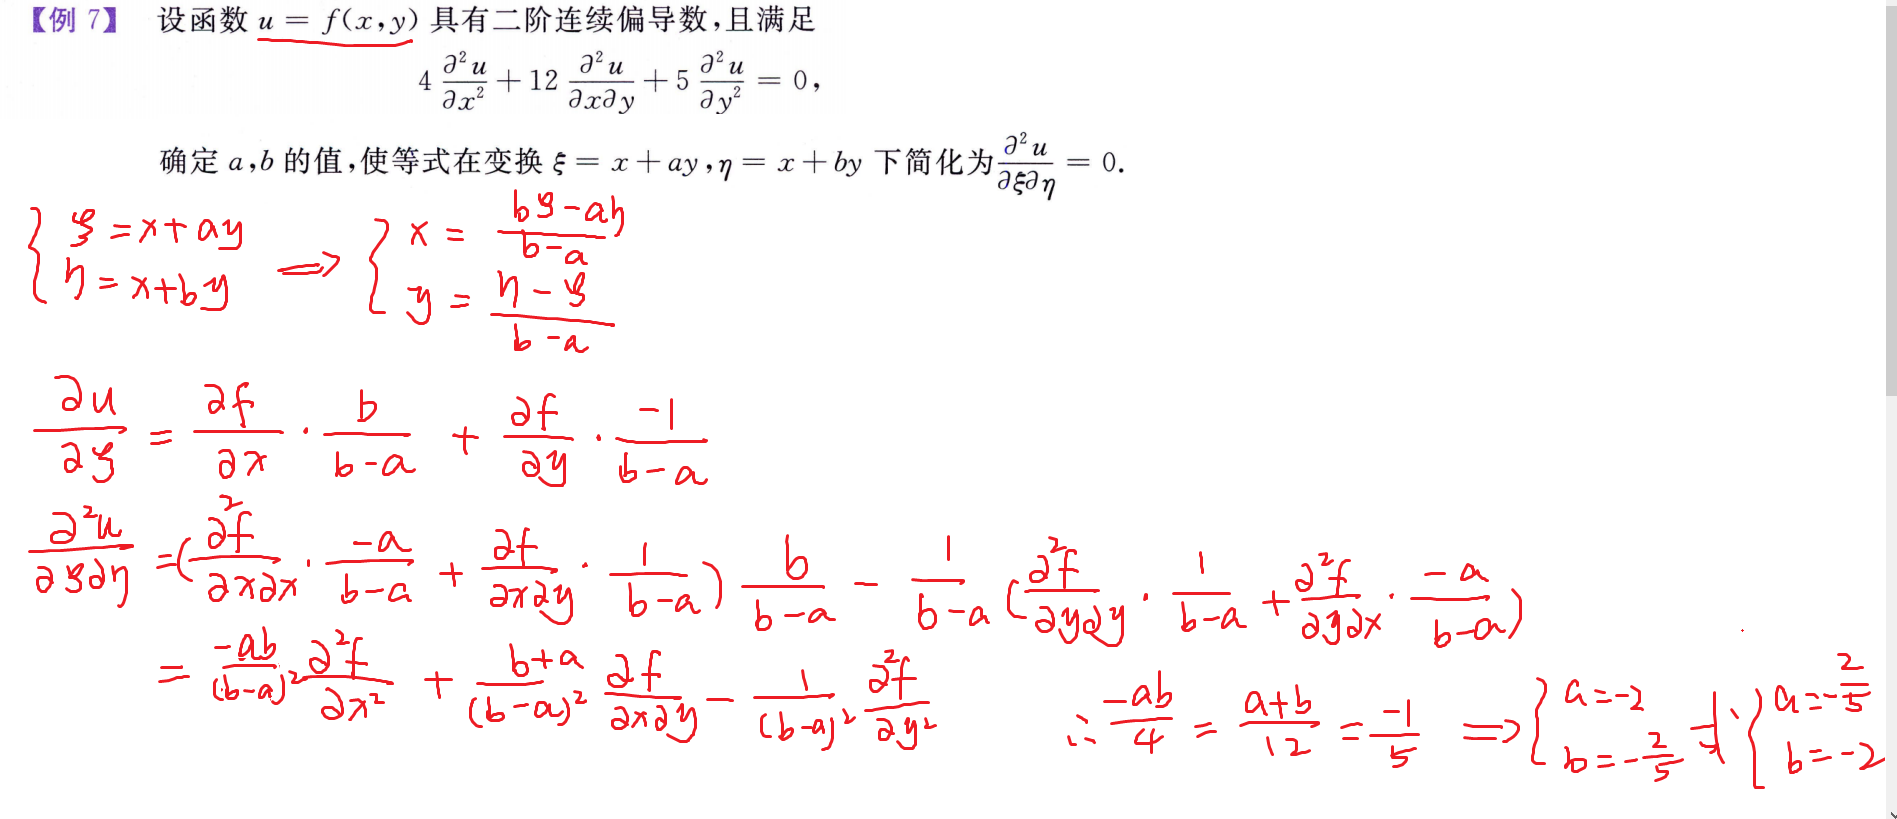 【例 7】 设函数 u = f(x,y) 具有二阶连续偏导数,且满足
4 ∂²u/∂x² + 12 ∂²u/∂x∂y + 5 ∂²u/∂y² = 0,
确定 a,b 的值,使等式在变换 ξ = x + ay, η = x + by 下简化为 ∂²u/∂ξ∂η = 0.
{ ξ = x + ay, η = x + by ⟹ { x = (bξ - aη)/(b - a), y = (η - ξ)/(b - a)
∂u/∂ξ = ∂f/∂x · b/(b-a) + ∂f/∂y · -1/(b-a)
∂²u/∂ξ∂η = (∂²f/∂x∂x · -a/(b-a) + ∂f/∂x∂y · 1/(b-a)) b/(b-a) - 1/(b-a) (∂²f/∂y∂y · 1/(b-a) + ∂²f/∂y∂x · -a/(b-a))
= -ab/(b-a)² ∂²f/∂x² + (b+a)/(b-a)² ∂f/∂x∂y - 1/(b-a)² ∂²f/∂y²
∴ -ab/4 = (a+b)/12 = -1/5 ⟹ { a = -2, b = -2/5 或 { a = -2/5, b = -2